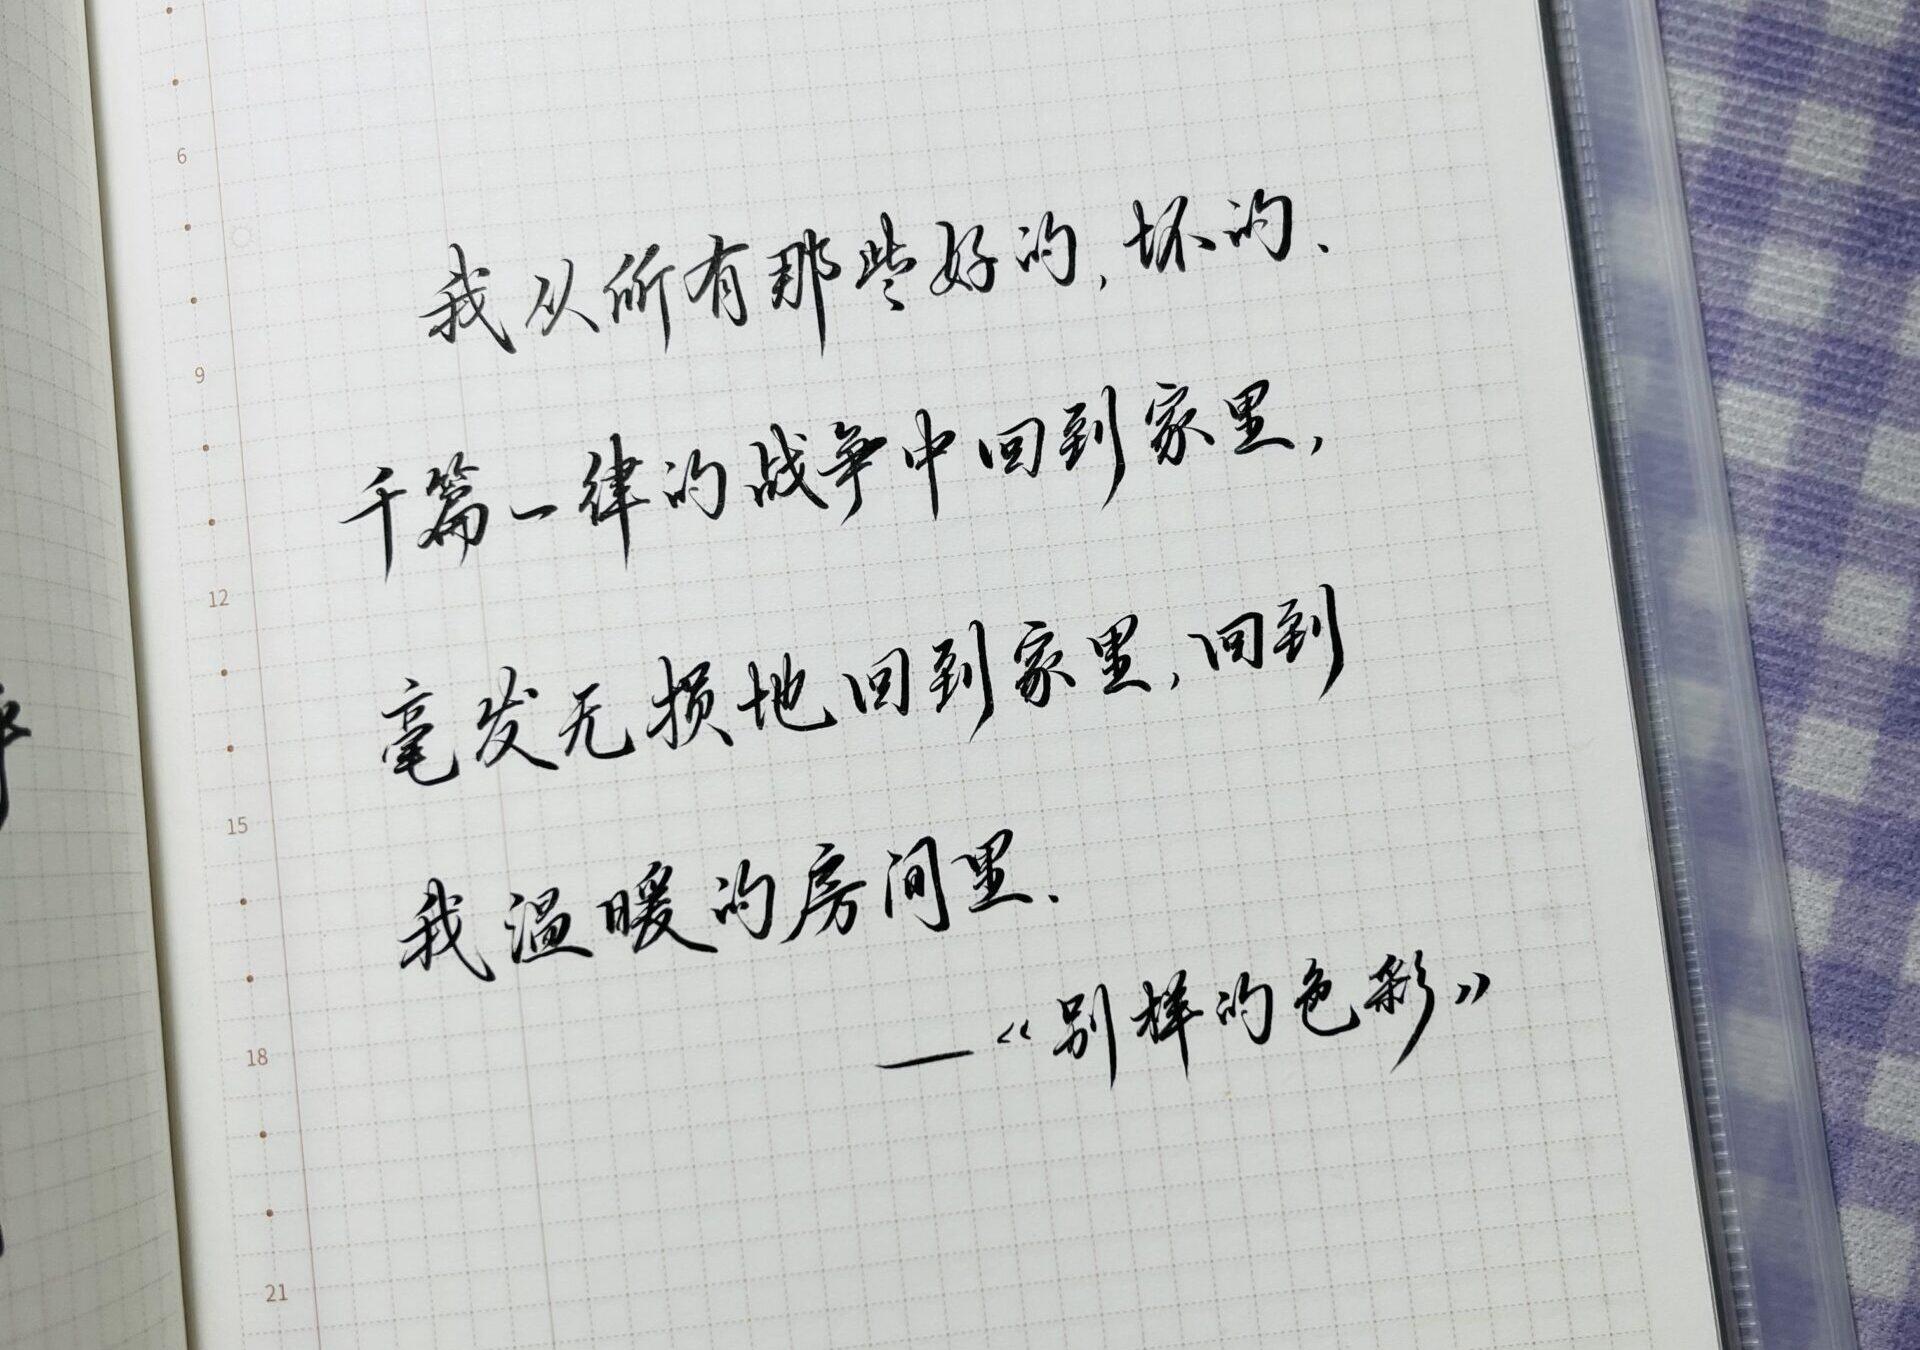 6
9
12
15
18
21
我从所有那些好的,坏的、
千篇一律的战争中回到家里,
毫发无损地回到家里,回到
我温暖的房间里.
—《别样的色彩》